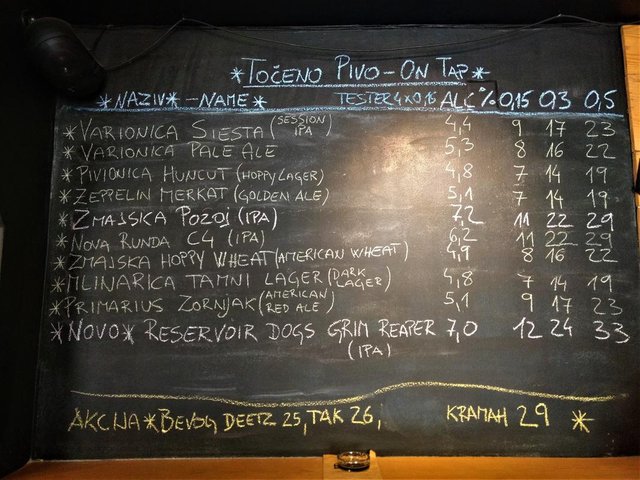 *TOČENO PIVO-ON TAP*
*NAZIV*-NAME* TESTER 4x0,15 ALC% 0,15 0,3 0,5
*VARIONICA SIESTA (SESSION IPA) 4,4 9 17 23
*VARIONICA PALE ALE 5,3 8 16 22
*PIVIONICA HUNCUT (HOPPY LAGER) 4,8 7 14 19
*ZEPPELIN MERKAT (GOLDEN ALE) 5,1 7 14 19
*ZMAJSKA POZOJ (IPA) 7,2 11 22 29
*NOVA RUNDA C4 (IPA) 6,2 11 22 29
*ZMAJSKA HOPPY WHEAT (AMERICAN WHEAT) 4,9 8 16 22
*MLINARICA TAMNI LAGER (DARK LAGER) 4,8 7 14 19
*PRIMARIUS ZORNJAK (AMERICAN RED ALE) 5,1 9 17 23
*NOVO* RESERVOIR DOGS GRIM REAPER 7,0 12 24 33
(IPA)
AKCIJA*BEVOG DEETZ 25, TAK 26, KRAMAH 29 *